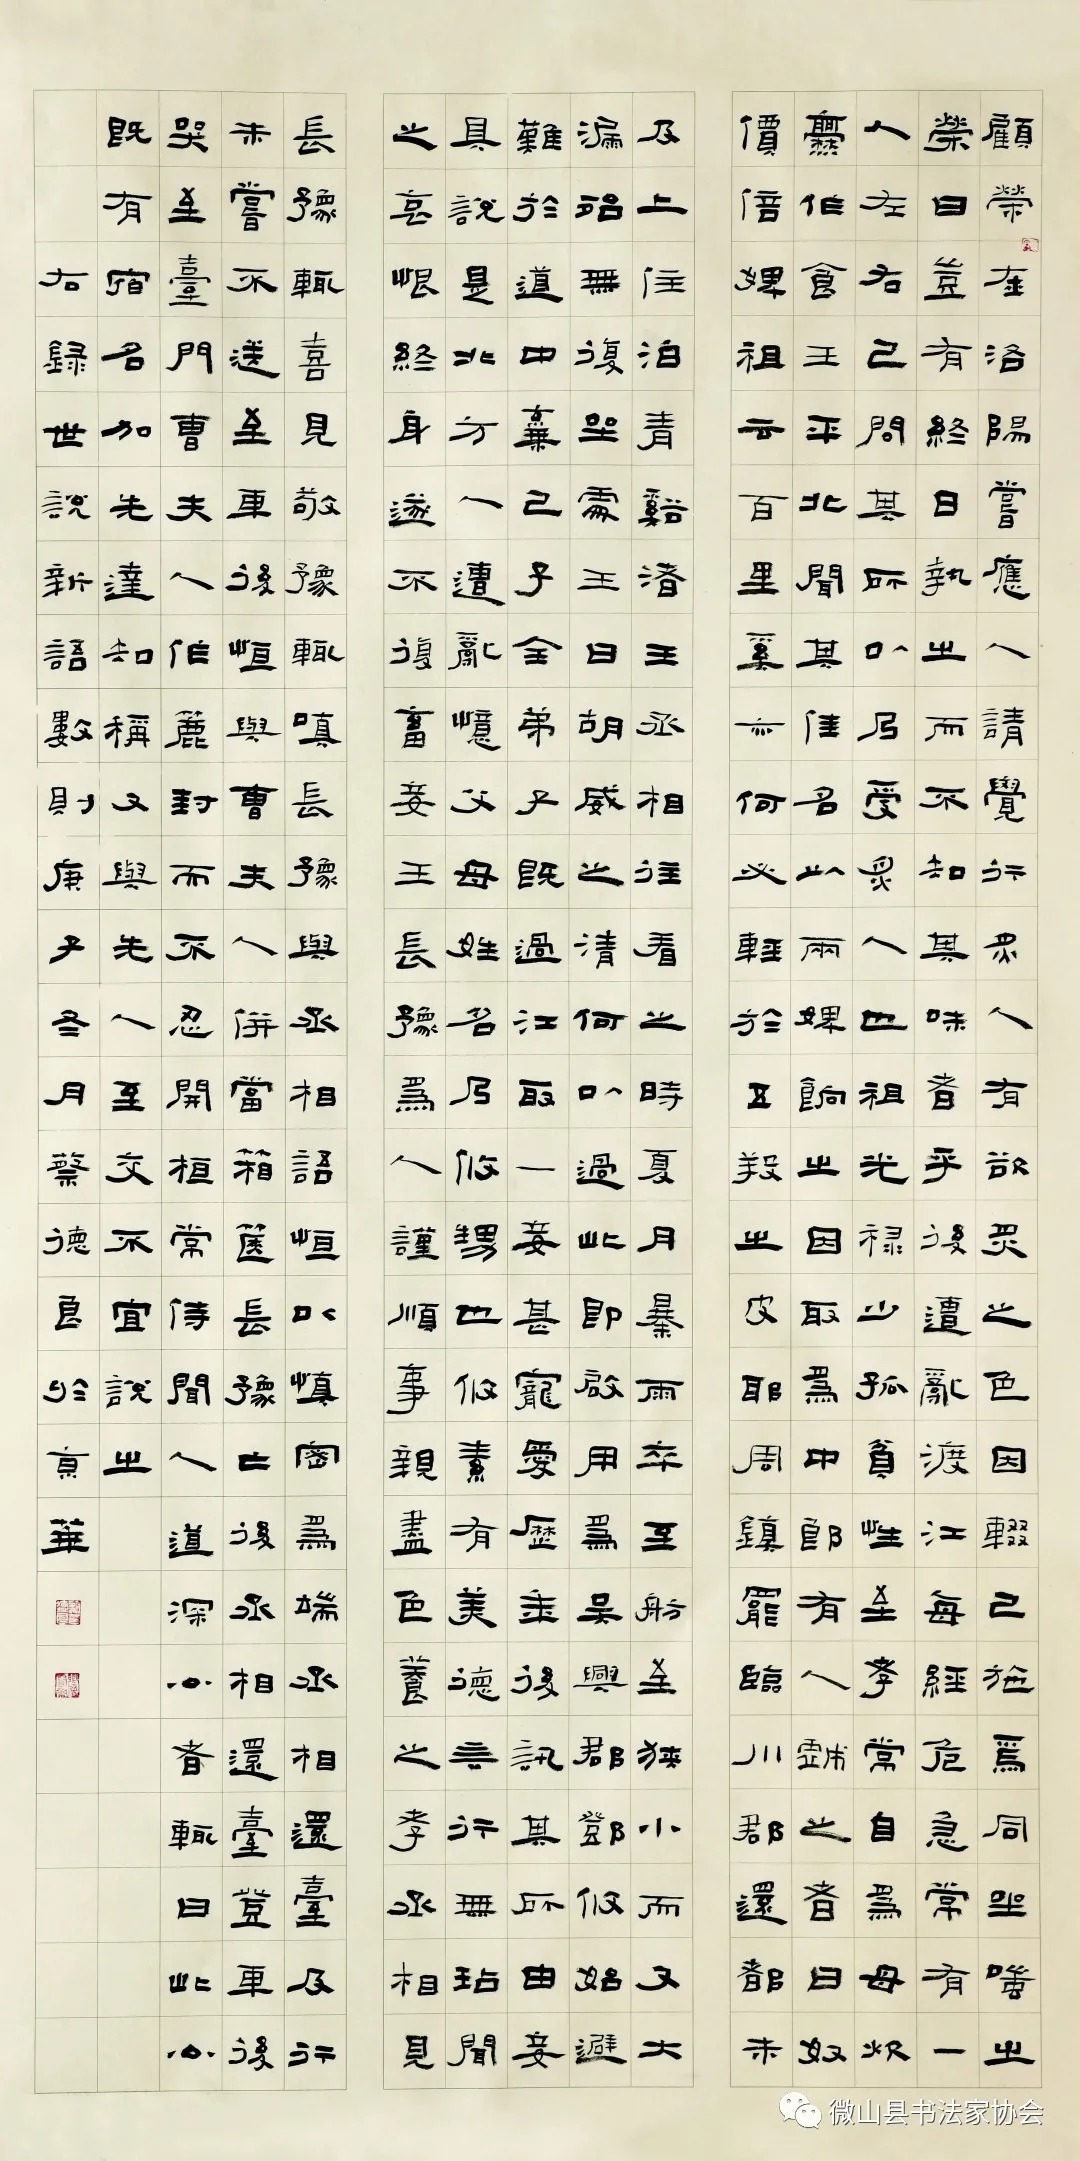 顧榮在洛陽嘗應人請覺行炙人有欲炙之色因輟己施焉同坐嗤之
榮曰豈有終日執之而不知其味者乎後遭亂渡江每經危急常有一
人左右己問其所以乃受炙人也祖光祿少孤貧性至孝常自為母炊
爨作食王平北聞其佳名以兩婢餉之因取為中郎有人戲之者曰奴
價倍婢祖云百里奚亦何必輕於五羖之皮耶周鎮罷臨川郡還都未
及上住泊青谿渚王丞相往看之時夏月暴雨卒至舫至狹小而又大
漏殆無復坐處王曰胡威之清何以過此即啟用為吳興郡鄧攸始避
難於道中棄己子全弟子既過江取一妾甚寵愛歷年後訊其所由妾
具說是北方人遭亂憶父母姓名乃攸甥也攸素有美德言行無玷聞
之哀恨終身遂不復畜妾王長豫為人謹順事親盡色養之孝丞相見
長豫輒喜見敬豫輒嗔長豫與丞相語恒以慎密為端丞相還臺及行
未嘗不送至車後恒與曹夫人併當箱篋長豫亡後丞相還臺登車後
哭至臺門曹夫人作簏封而不忍開桓常侍聞人道深公者輒曰此公
既有宿名加先達知稱又與先人至交不宜說之
右錄世說新語數則庚子冬月蔡德良於京華
微山县书法家协会